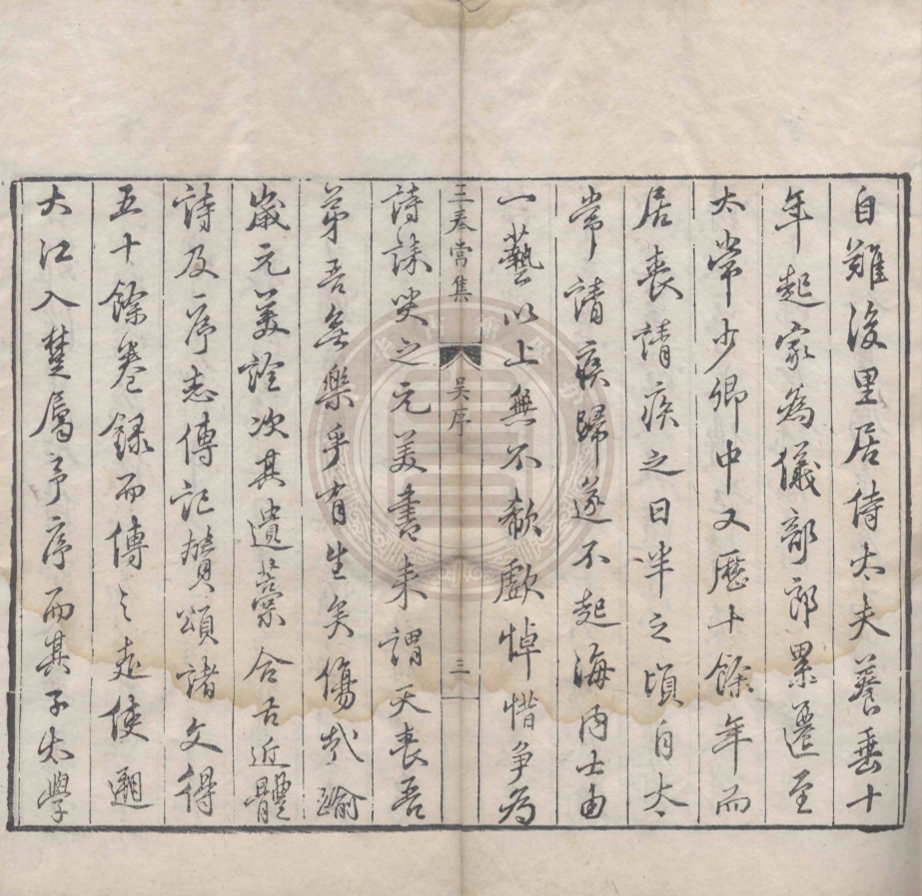 自難後里居侍太夫養垂十
年起家為儀部郎累遷至
太常少卿中又歷十餘年而
居喪請疾之日半之頃自太
常請疾歸遂不起海内士由
一藝以上無不欷歔悼惜争為
王奉常集 吳序 三
詩誄哭之元美書来謂天喪吾
弟吾無樂乎有生矣傷哉踰
嵗元美詮次其遺藁合古近體
詩及序志傳記贊頌諸文得
五十餘卷録而傳之走使遡
大江入楚屬予序而其子太學